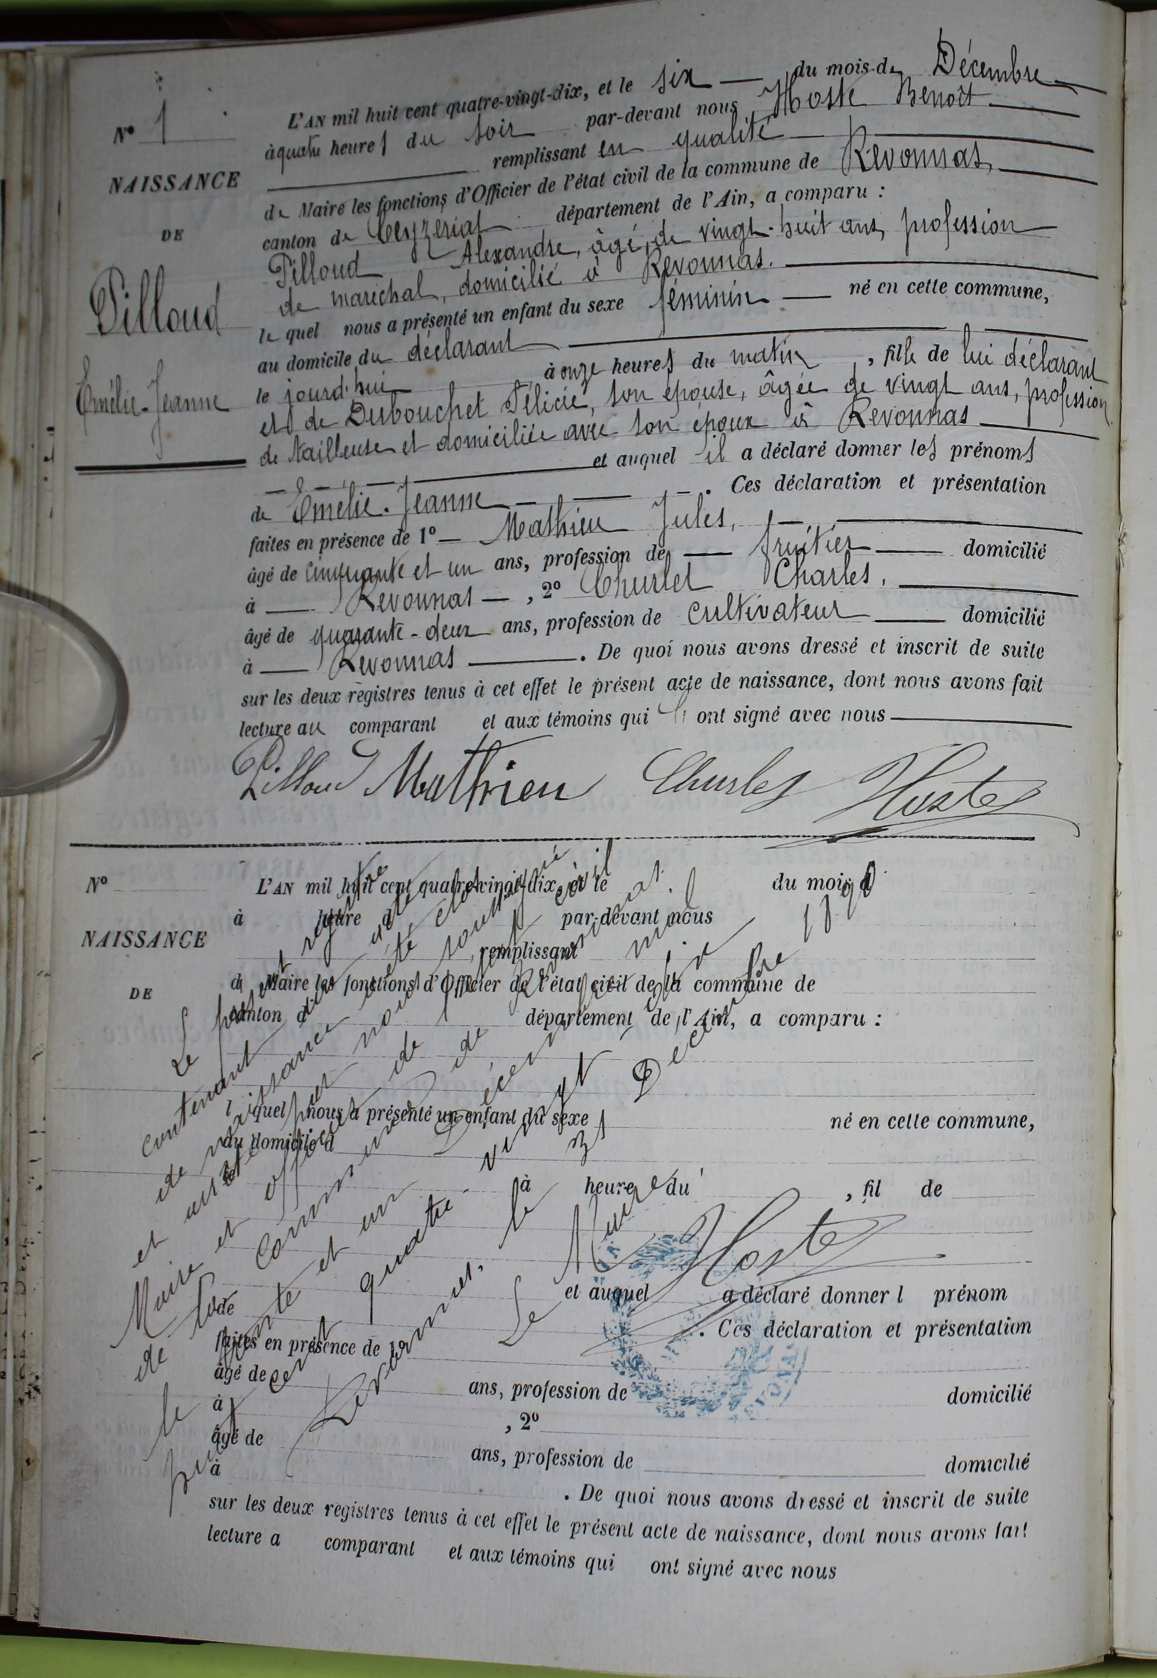 N° 1
NAISSANCE
DE
Pilloud
Emélie-Jeanne
L'AN mil huit cent quatre-vingt-dix, et le six du mois de Décembre
à quatre heures du soir par-devant nous Hoste Benoît
remplissant en qualité
de Maire les fonctions d'Officier de l'état civil de la commune de Revonnas,
canton de Ceyzériat département de l'Ain, a comparu :
Pilloud Alexandre, âgé de vingt-huit ans, profession
de maréchal, domicilié à Revonnas.
le quel nous a présenté un enfant du sexe féminin né en cette commune,
au domicile du déclarant
le jourd'hui à onze heures du matin, fille de lui déclarant
et de Dubouchet Félicie, son épouse, âgée de vingt ans, profession
de tailleuse et domiciliée avec son époux à Revonnas
et auquel il a déclaré donner les prénoms
de Emélie-Jeanne. Ces déclaration et présentation
faites en présence de 1° Mathieu Jules,
âgé de cinquante et un ans, profession de fruitier domicilié
à Revonnas, 2° Churlet Charles,
âgé de quarante-deux ans, profession de cultivateur domicilié
à Revonnas. De quoi nous avons dressé et inscrit de suite
sur les deux registres tenus à cet effet le présent acte de naissance, dont nous avons fait
lecture au comparant et aux témoins qui ont signé avec nous
Pilloud Mathieu Churlet Hoste
N°
NAISSANCE
DE
L'AN mil huit cent quatre-vingt-dix, et le du mois d
à heure d par-devant nous
remplissant
d Maire les fonctions d'Officier de l'état civil de la commune de
canton d département de l'Ain, a comparu :
l quel nous a présenté un enfant du sexe né en cette commune,
au domicile d
le à heure du , fil de
et auquel a déclaré donner l prénom
de . Ces déclaration et présentation
faites en présence de 1°
âgé de ans, profession de domicilié
à , 2°
âgé de ans, profession de domicilié
à . De quoi nous avons dressé et inscrit de suite
sur les deux registres tenus à cet effet le présent acte de naissance, dont nous avons fait
lecture a comparant et aux témoins qui ont signé avec nous
Le présent registre
contenant un acte
de naissance a été clos
et arrêté par nous soussigné
Maire et officier de l'état civil
de la commune de Revonnas
le trente et un Décembre mil
huit cent quatre-vingt-dix
Revonnas, le 31 Décembre 1890
Le Maire
Hoste